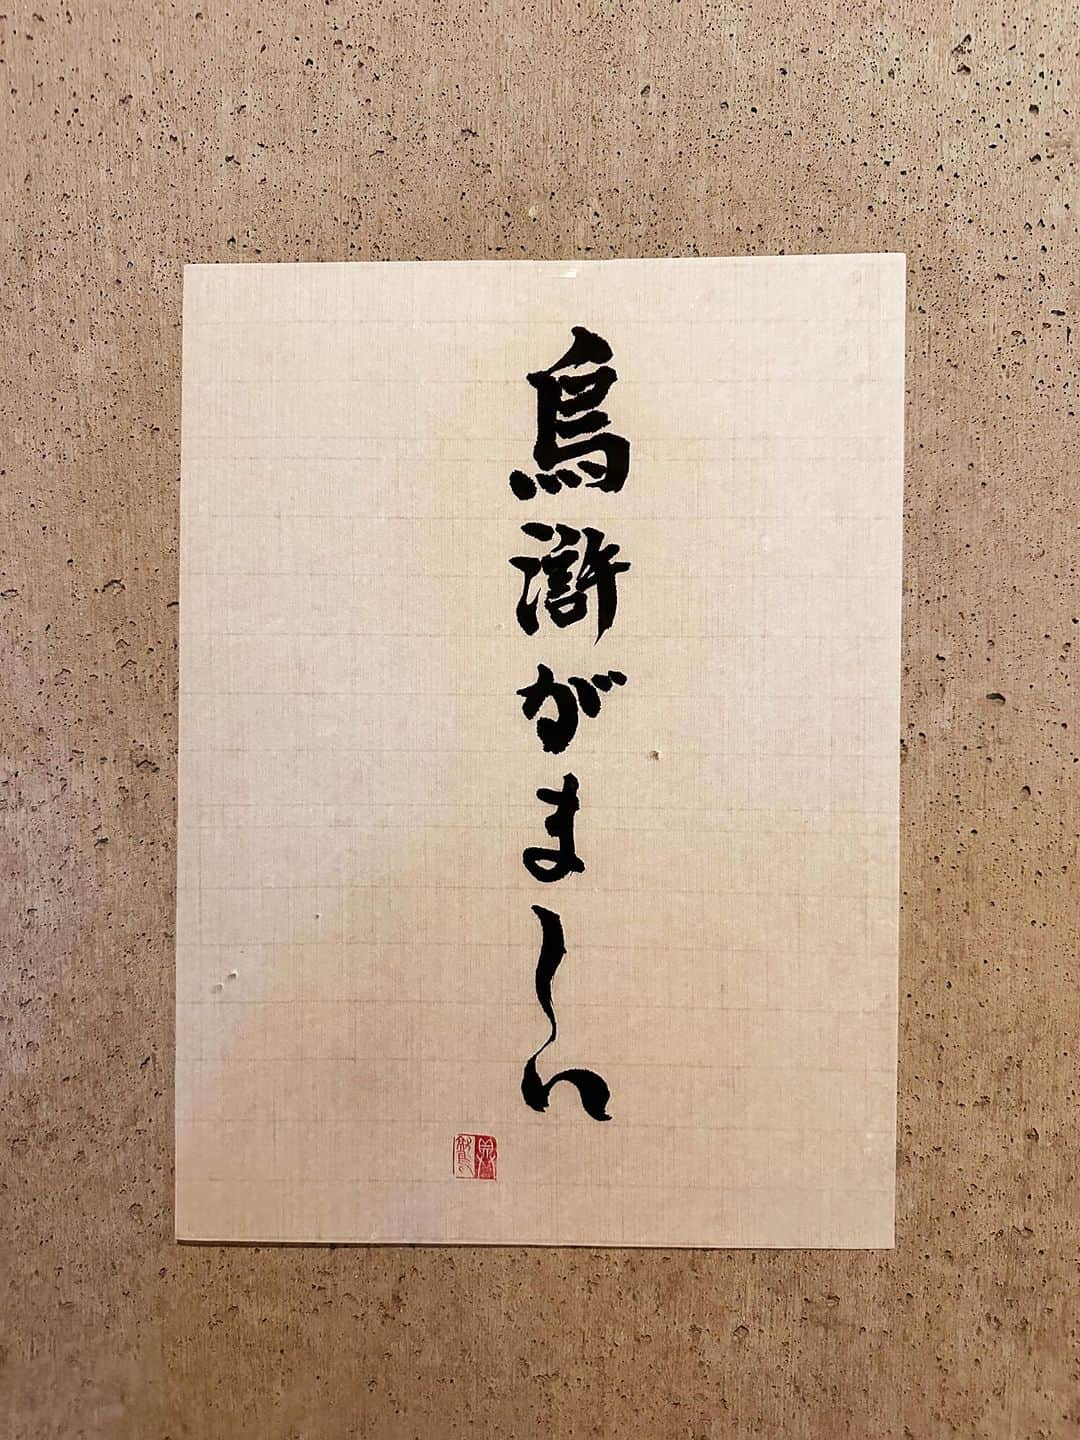 烏滸がましい